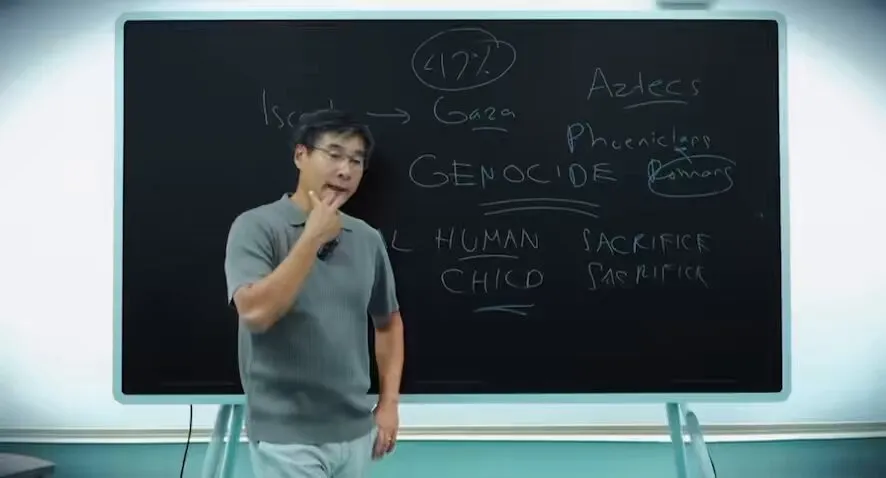 47%
→ Gaza
Aztecs
Phoenicians
Romans
GENOCIDE
L HUMAN SACRIFICE
CHILD SACRIFICE